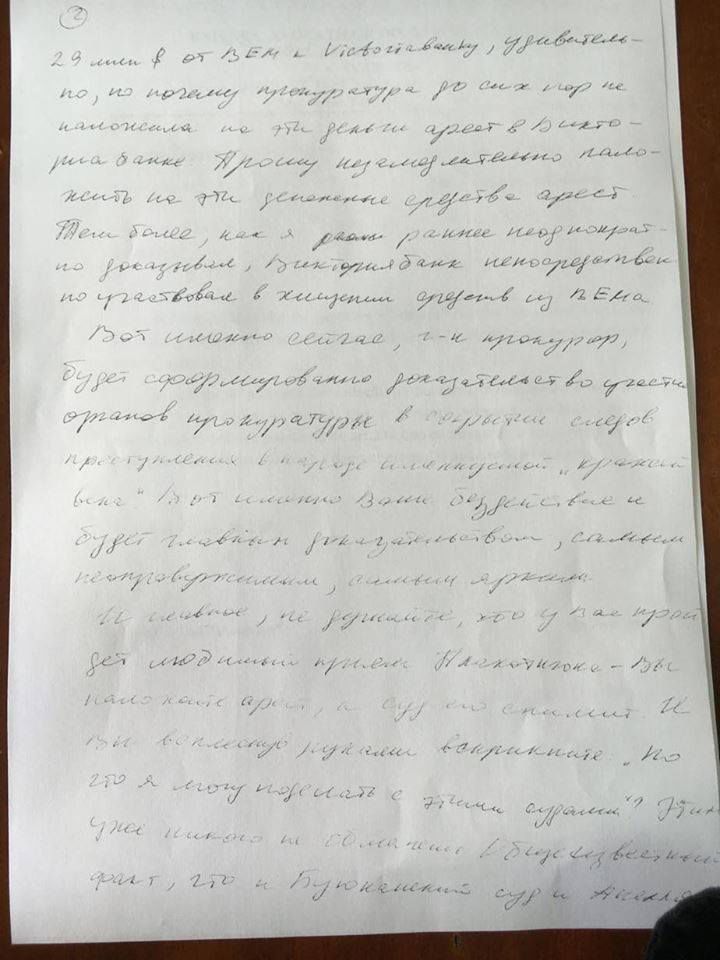 2
29 млн $ от BEM к Victoriaбанку, удивитель-
но, но почему прокуратура до сих пор не
наложила на эти деньги арест в Викто-
риабанке. Прошу незамедлительно нало-
жить на эти денежные средства арест.
Тем более, как я раннее неоднократ-
но доказывал, Викториябанк непосредствен
но участвовал в хищении средств из BEMа
Вот именно сейчас, г-н прокурор,
будет сформированно доказательство участия
органов прокуратуры в сокрытии следов
преступления в народе именуемой „кражей
века“ Вот именно Ваше бездействие и
будет главным доказательством, самым
неопровержимым, самым ярким.
И главное, не думайте, что у Вас прой
дет любимый прием Плахотнюка – Вы
наложите арест, а суд его снимит. И
Вы всплеснув руками вскрикните: „Но
что я могу поделать с этими судами“? Этим
уже никого не обманешь. Общеизвестный
факт, что и Буюканский суд и Апелля